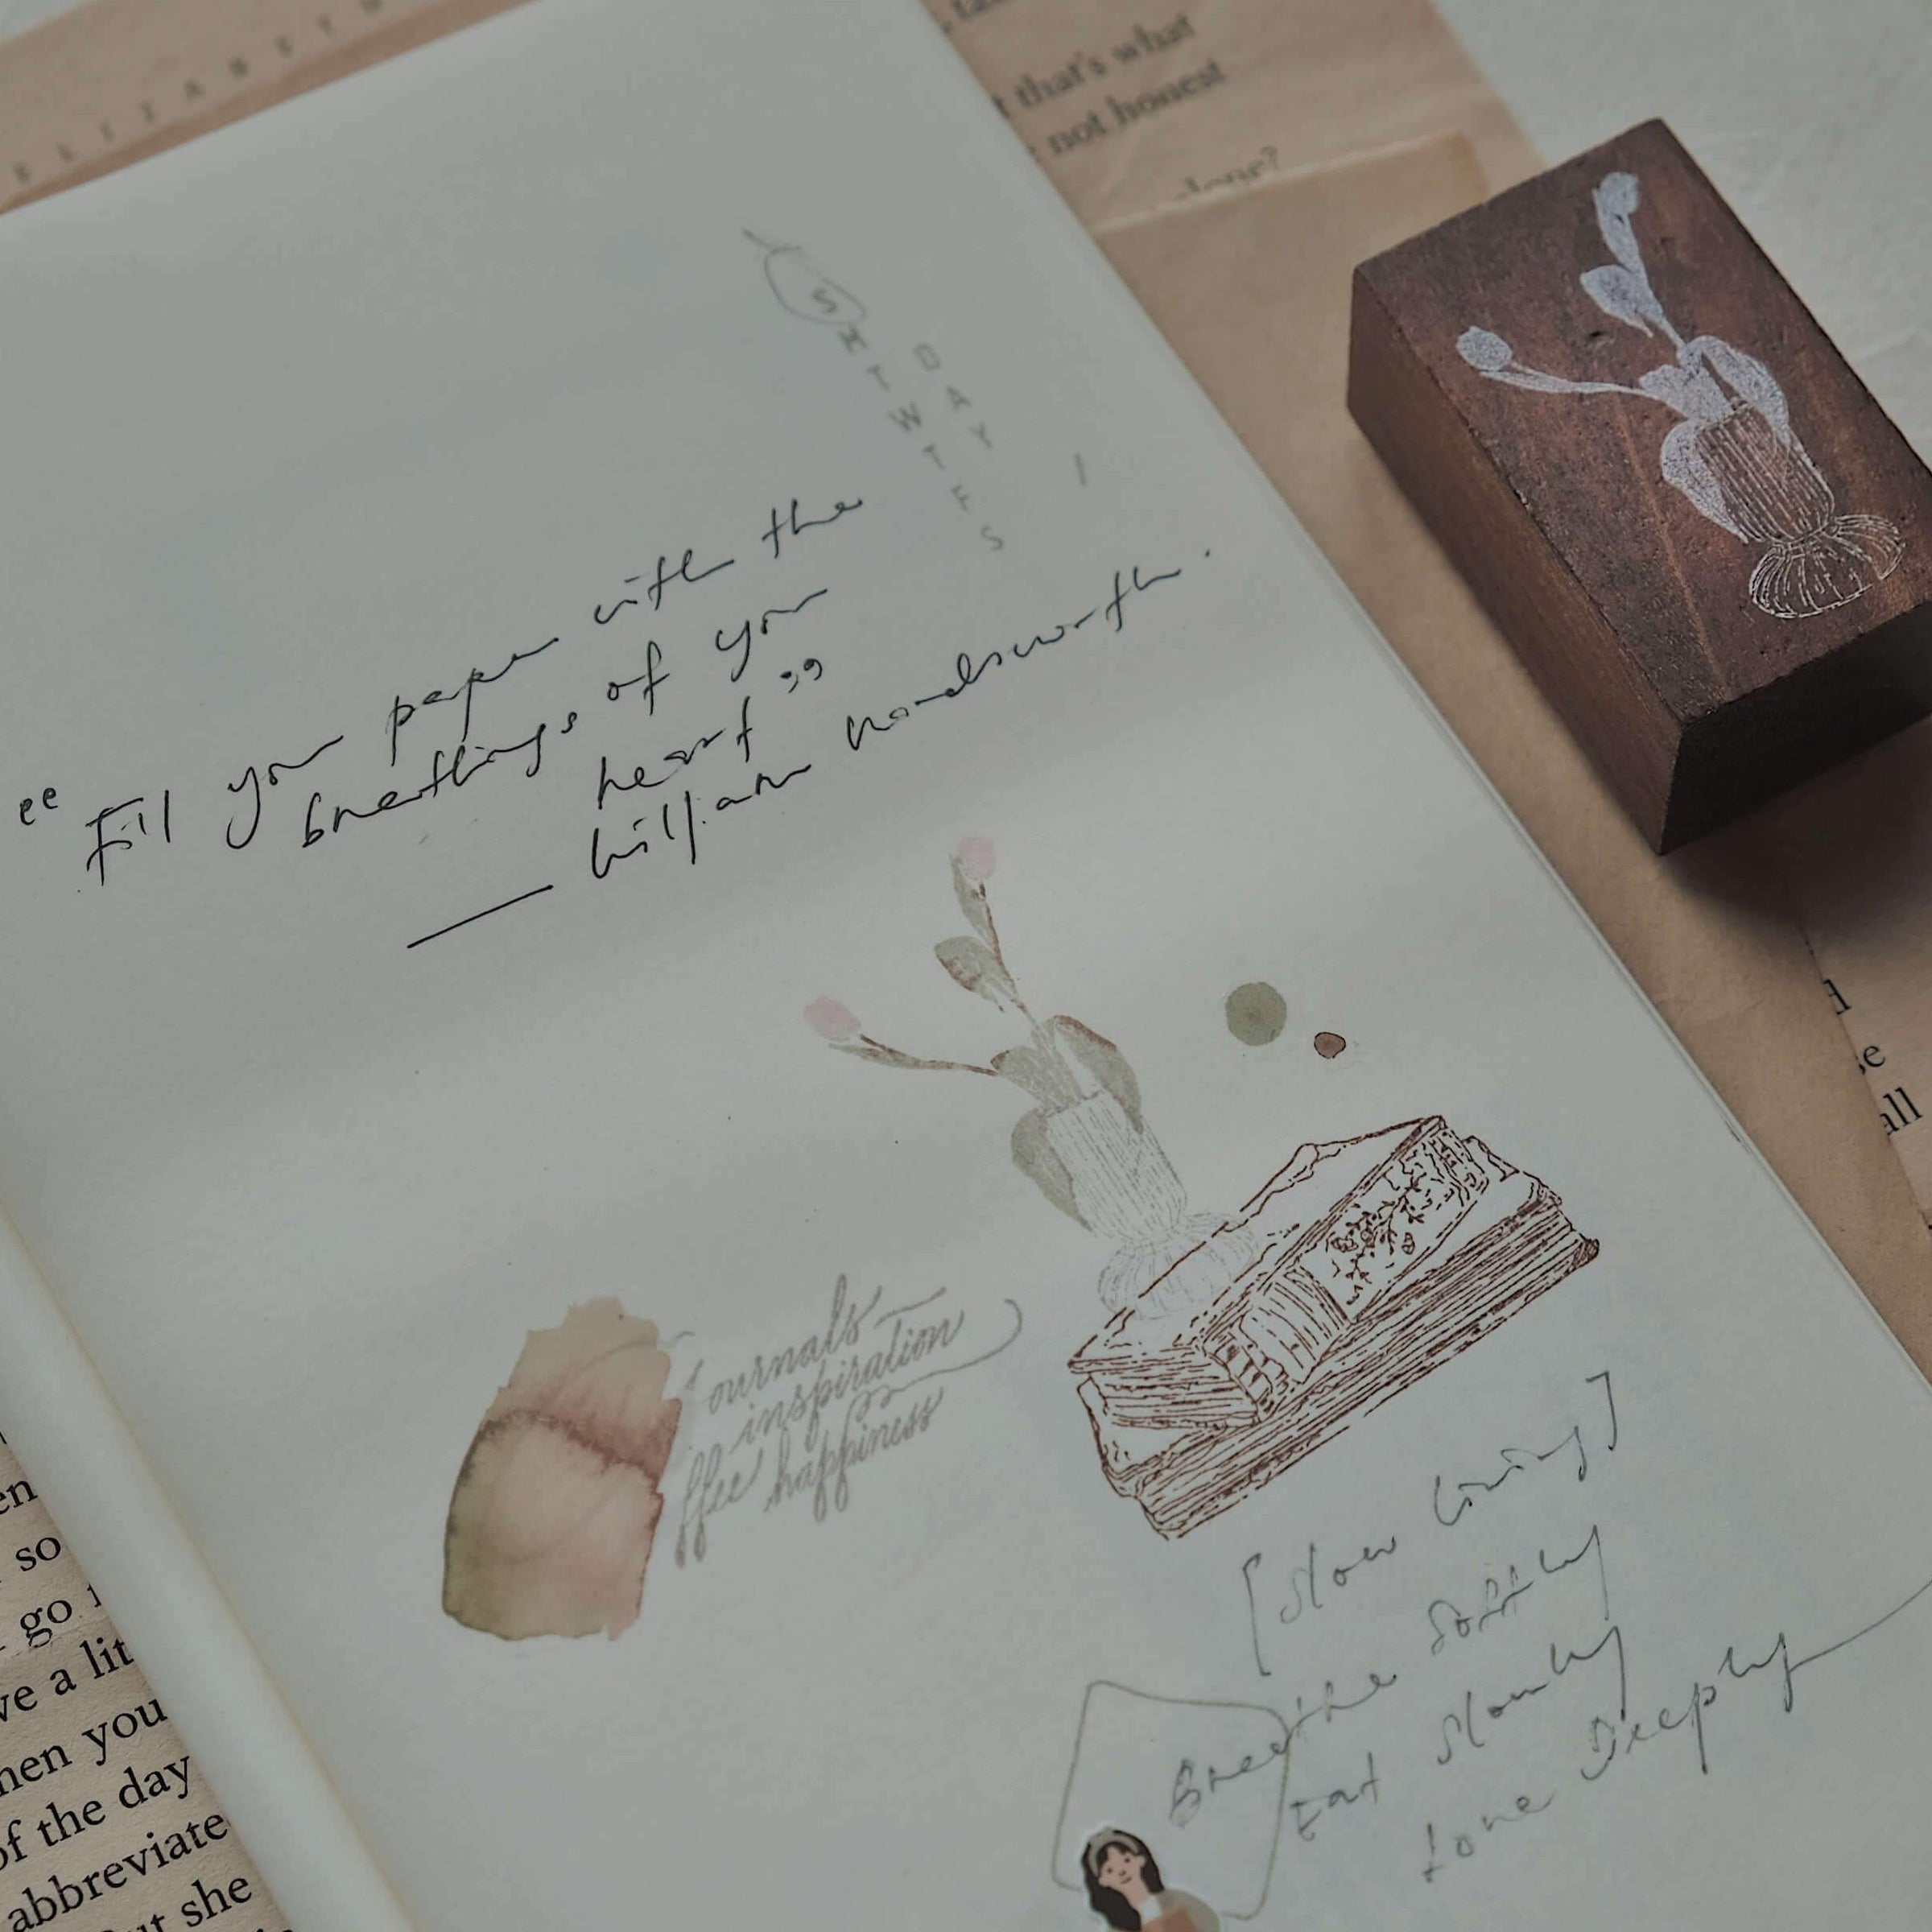 ELIZABETH
that's what
not honest
done?
SHIWIFS
DAY 1
“Fill your paper with the
breathings of your
heart”
— William wordsworth.
Journals
inspiration
ffee happiness
[Slow living]
Breathe Softly
Eat Slowly
Love Deeply
en
so
go
ve a lit
hen you
of the day
abbreviate
ut she
se
all